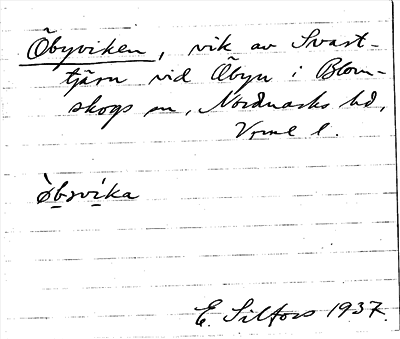 Öbyviken, vik av Svart-
tjärn vid Öbyn i Blom-
skogs sn, Nordmarks hd,
Vrml l.
òbyvíka
E. Silfors 1937.